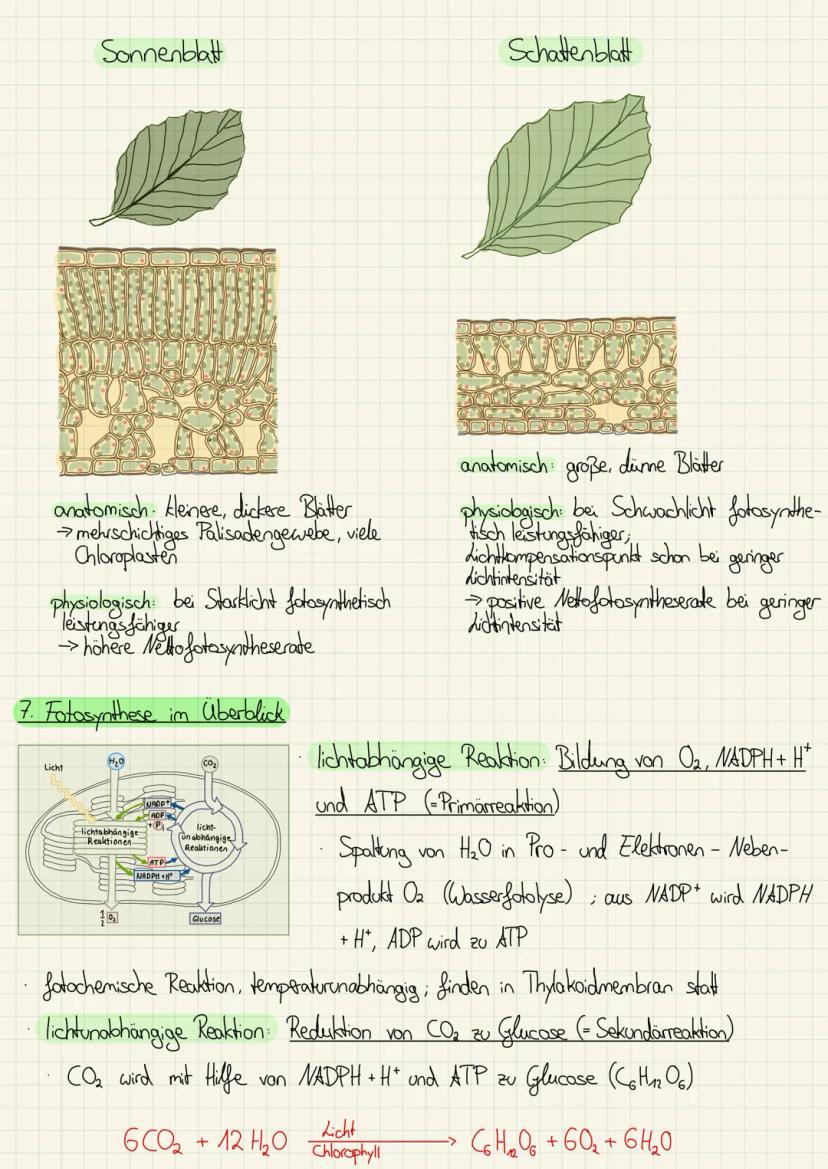 Sonnenblatt
Schattenblatt
anatomisch: kleinere, dickere Blätter
→ mehrschichtiges Palisadengewebe, viele
Chloroplasten
physiologisch: bei Starklicht fotosynthetisch
leistungsfähiger
→ höhere Nettofotosyntheserate
anatomisch: große, dünne Blätter
physiologisch: bei Schwachlicht fotosynthe-
tisch leistungsfähiger;
Lichtkompensationspunkt schon bei geringer
Lichtintensität
→ positive Nettofotosyntheserate bei geringer
Lichtintensität
7. Fotosynthese im Überblick
Licht
H₂O
CO₂
NADP⁺
ADP
+ Pᵢ
lichtabhängige
Reaktionen
licht-
unabhängige
Reaktionen
ATP
NADPH+H⁺
½ O₂
Glucose
· lichtabhängige Reaktion: Bildung von O₂, NADPH + H⁺
und ATP (=Primärreaktion)
· Spaltung von H₂O in Pro- und Elektronen - Neben-
produkt O₂ (Wasserfotolyse) ; aus NADP⁺ wird NADPH
+ H⁺, ADP wird zu ATP
· fotochemische Reaktion, temperaturunabhängig; finden in Thylakoidmembran statt
· lichtunabhängige Reaktion: Reduktion von CO₂ zu Glucose (= Sekundärreaktion)
· CO₂ wird mit Hilfe von NADPH + H⁺ und ATP zu Glucose (C₆H₁₂O₆)
6CO₂ + 12H₂O Licht
Chlorophyll → C₆H₁₂O₆ + 6O₂ + 6H₂O